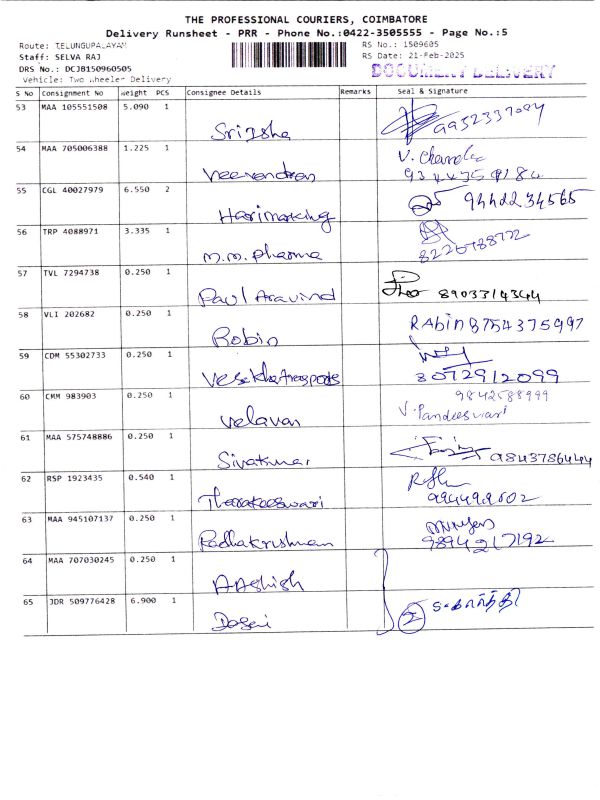 THE PROFESSIONAL COURIERS, COIMBATORE
Delivery Runsheet - PRR - Phone No.:0422-3505555 - Page No.:5
Route: TELUNGUPALAYAM
RS No.: 1509605
Staff: SELVA RAJ
RS Date: 21-Feb-2025
DRS No.: DCJB150960505
DOCUMENT DELIVERY
Vehicle: Two Wheeler Delivery
S No Consignment No Weight PCS Consignee Details Remarks Seal & Signature
53 MAA 105551508 5.090 1 9952337094
54 MAA 705006388 1.225 1 Veerendran V. Chandra
55 CGL 40027979 6.550 2 Harimarking 9442234565
56 TRP 4088971 3.335 1 M.M. Pharma
57 TVL 7294738 0.250 1 Paul Aravind 8903314344
58 VLI 202682 0.250 1 Robin RAbin 8754375997
59 CDM 55302733 0.250 1 8072912099
60 CMM 983903 0.250 1 Velavan 9842588999
V. Pandeeswari
61 MAA 575748886 0.250 1 Sivakumar 9843786444
62 RSP 1923435 0.540 1
63 MAA 945107137 0.250 1 Radhakrishnan 9894217192
64 MAA 707030245 0.250 1 AAshish
65 JDR 509776428 6.900 1 Desai 2